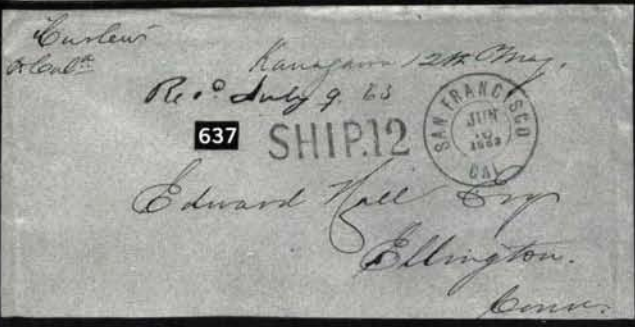 "Curlew"
Kanagawa 12th May.
Rec'd July 9. 63
637
SHIP.12
SAN FRANCISCO
JUN
10
1863
CAL
Edward Hall Esq
Ellington.
Conn.